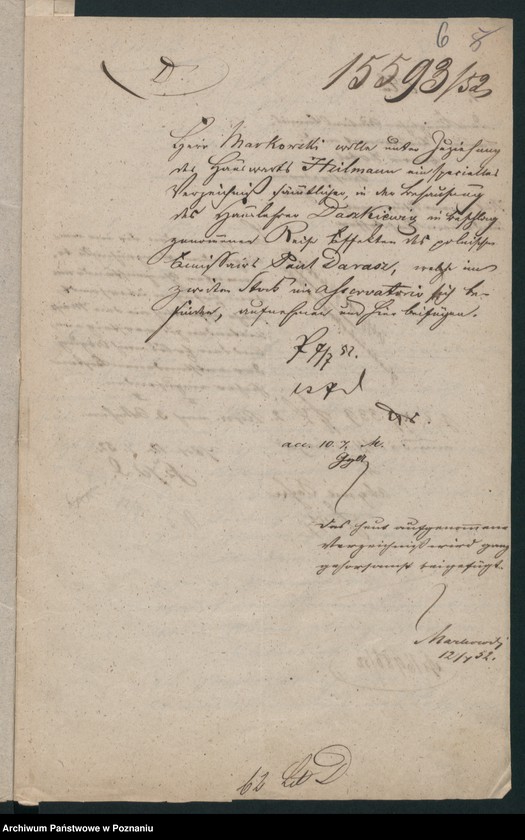 6 8
D.
15593/52
Herr Markowski wolle unter Zuziehung
des Hauswarts Heilmann ein specielles
Verzeichniß sämmtlicher, in der Behausung
des Hauslehrer Daszkiewicz in Beschlag
genommener Reise Effekten des polnischen
Emissairs Paul Darasz, welche im
zweiten Stock im Asservatorio sich be-
finden, aufnehmen und hier beifügen.
P 9/7 52.
acc. 10. 7. M.
Das heut aufgenommene
Verzeichniß wird ganz
gehorsamst beigefügt.
Markowski
12/7 52.
62 Lit D
Archiwum Państwowe w Poznaniu